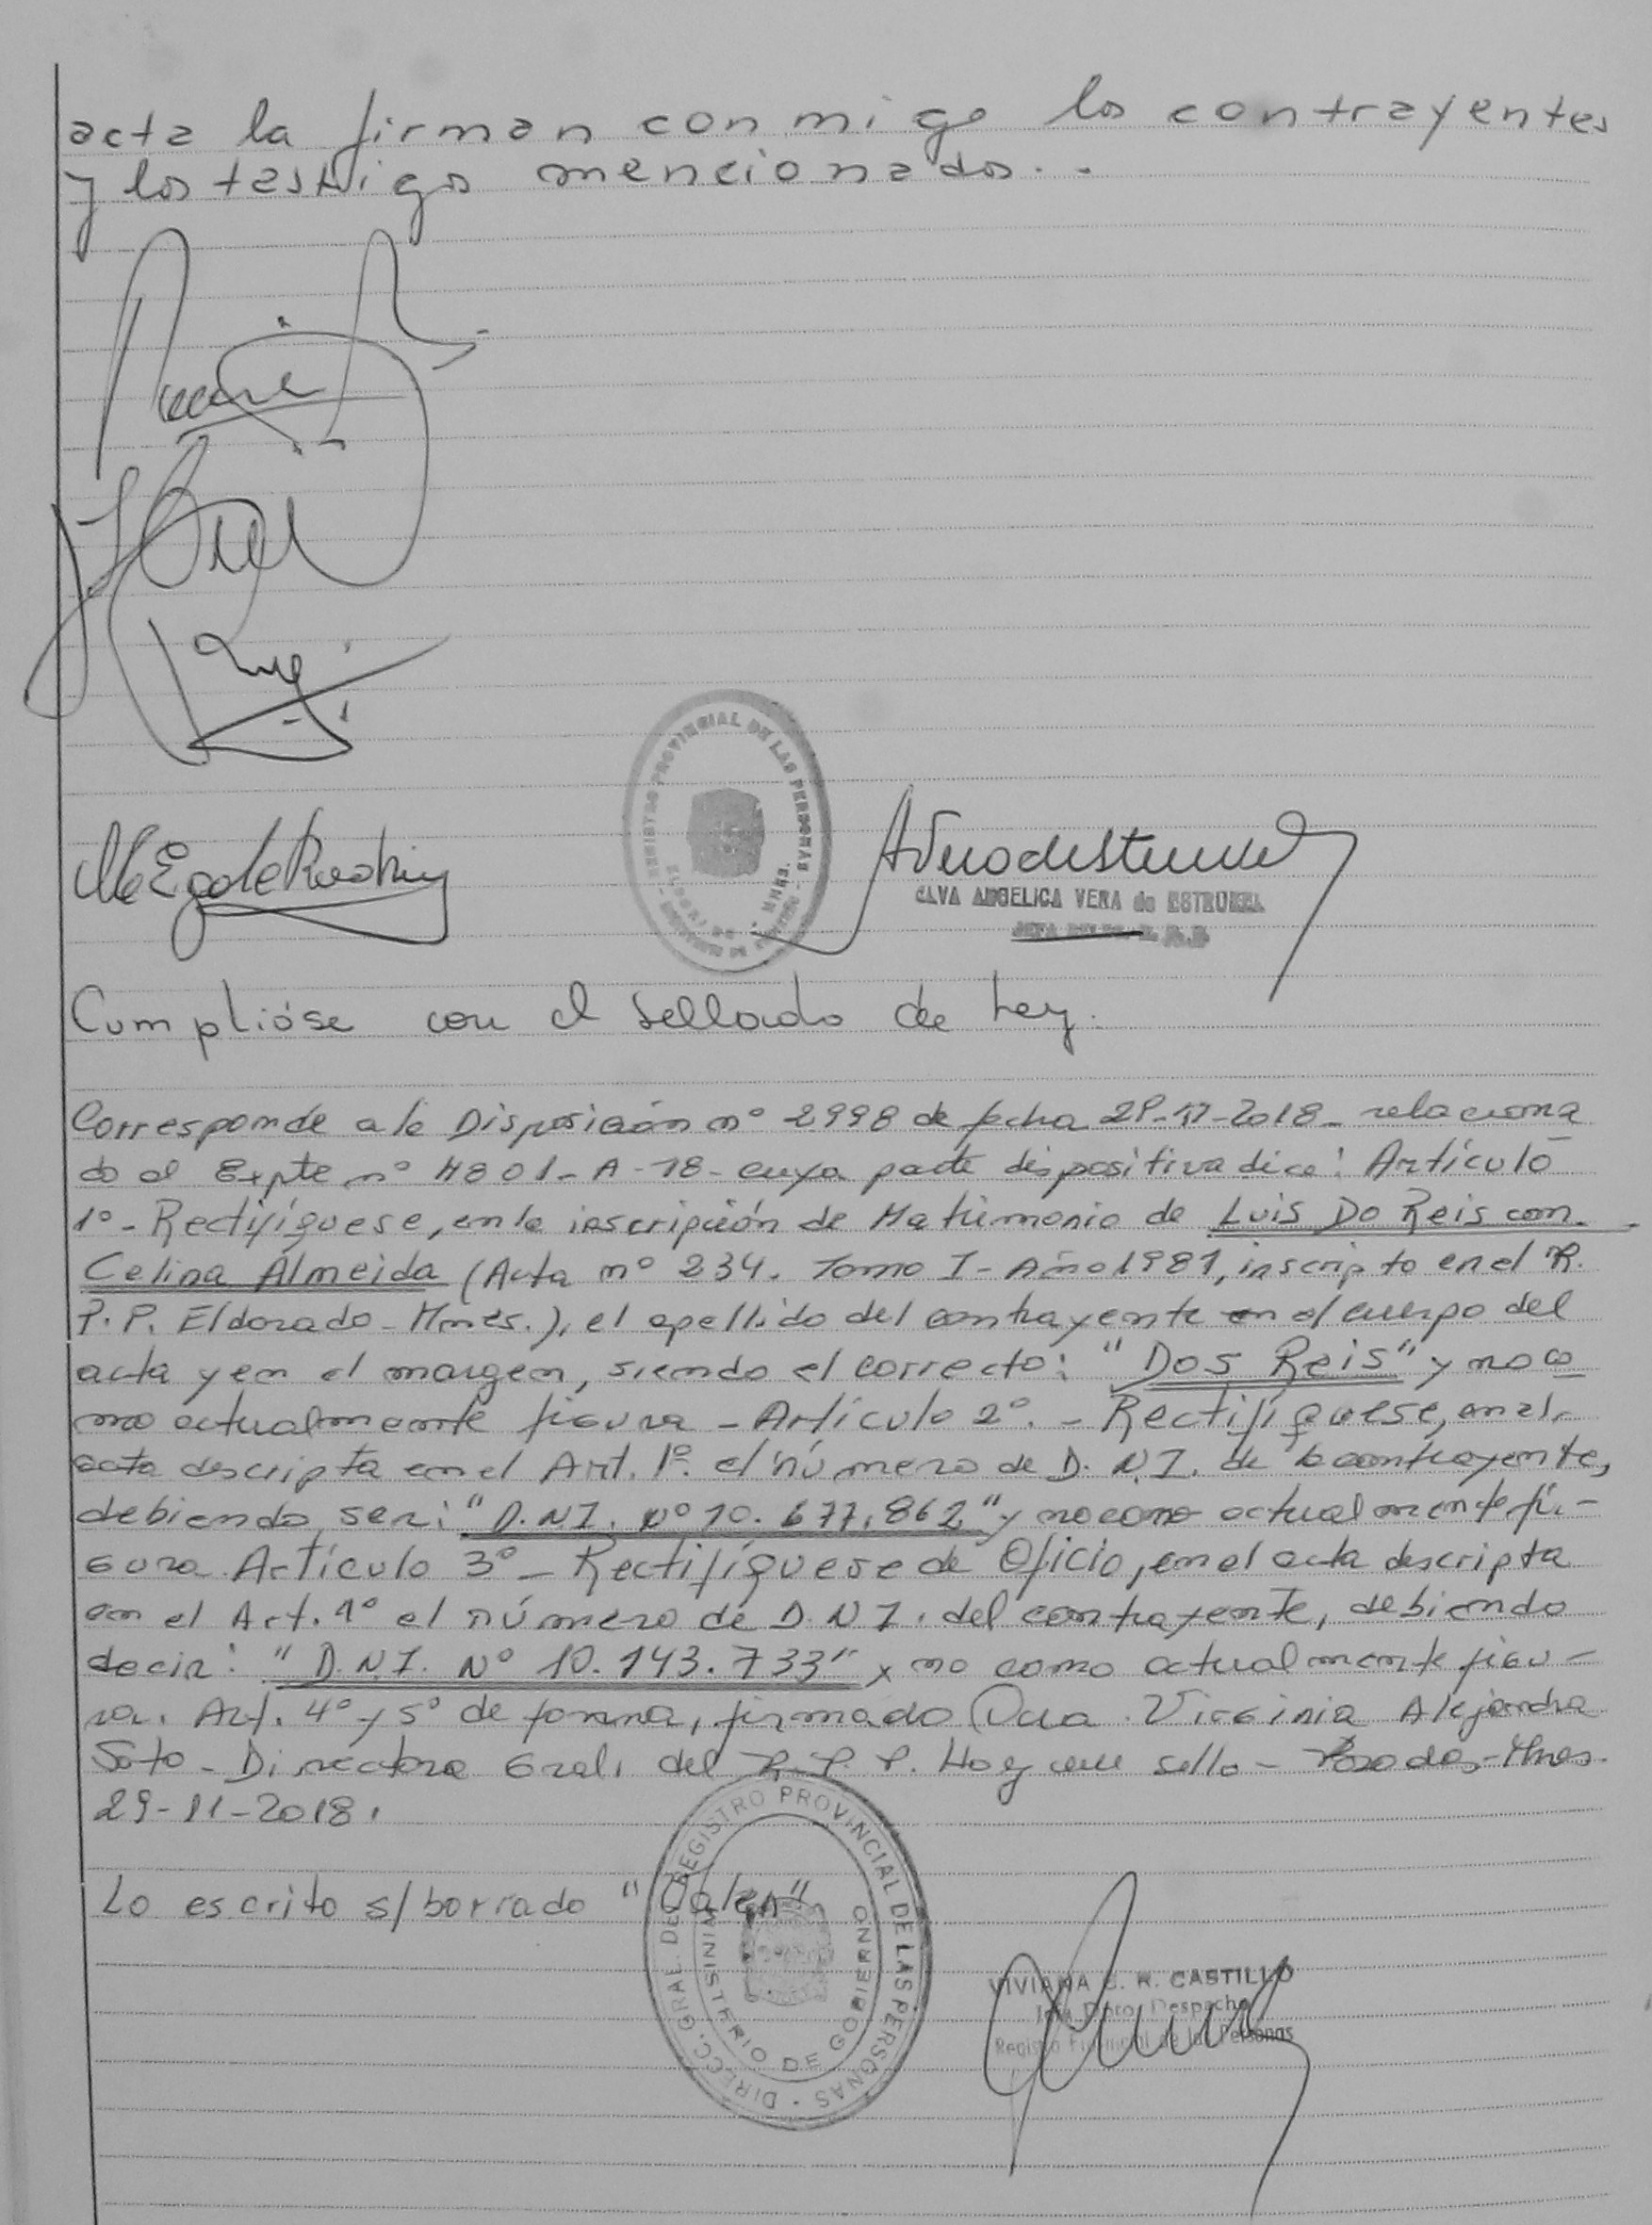 acta la firman conmigo los contrayentes
y los testigos mencionados..
REGISTRO PROVINCIAL DE LAS PERSONAS
ANGELICA VERA de ESTRUBEL
Cumplióse con el sellado de Ley.
Corresponde a la Disposición nº 2998 de fecha 29-11-2018- relaciona
do al Expte nº 4801-A-18- cuya parte dispositiva dice: Artículo
1º- Rectifíquese, en la inscripción de Matrimonio de Luis Do Reis con
Celina Almeida (Acta nº 234. Tomo I- Año 1981, inscripto en el R.
P.P. Eldorado-Mnes.), el apellido del contrayente en el cuerpo del
acta y en el margen, siendo el correcto: "Dos Reis" y no co
mo actualmente figura - Artículo 2º.- Rectifíquese, en el
acta descripta en el Art. 1º. el número de D.N.I. de la contrayente,
debiendo ser: "D.N.I. Nº 10.677.862" y no como actualmente fi-
gura. Artículo 3º- Rectifíquese de Oficio, en el acta descripta
en el Art. 1º el número de D.N.I. del contrayente, debiendo
decir: "D.N.I. Nº 10.143.733" y no como actualmente figu-
ra. Art. 4º y 5º de forma, firmado Dra. Virginia Alejandra
Soto - Directora Gral. del R.P.P. Hay un sello - Posadas-Mnes.
29-11-2018.
Lo escrito s/borrado
DIREC. GRAL. DEL REGISTRO PROVINCIAL DE LAS PERSONAS
MINISTERIO DE GOBIERNO
VIVIANA C. R. CASTILLO
Jefa Dpto. Despacho
Registro Provincial de las Personas